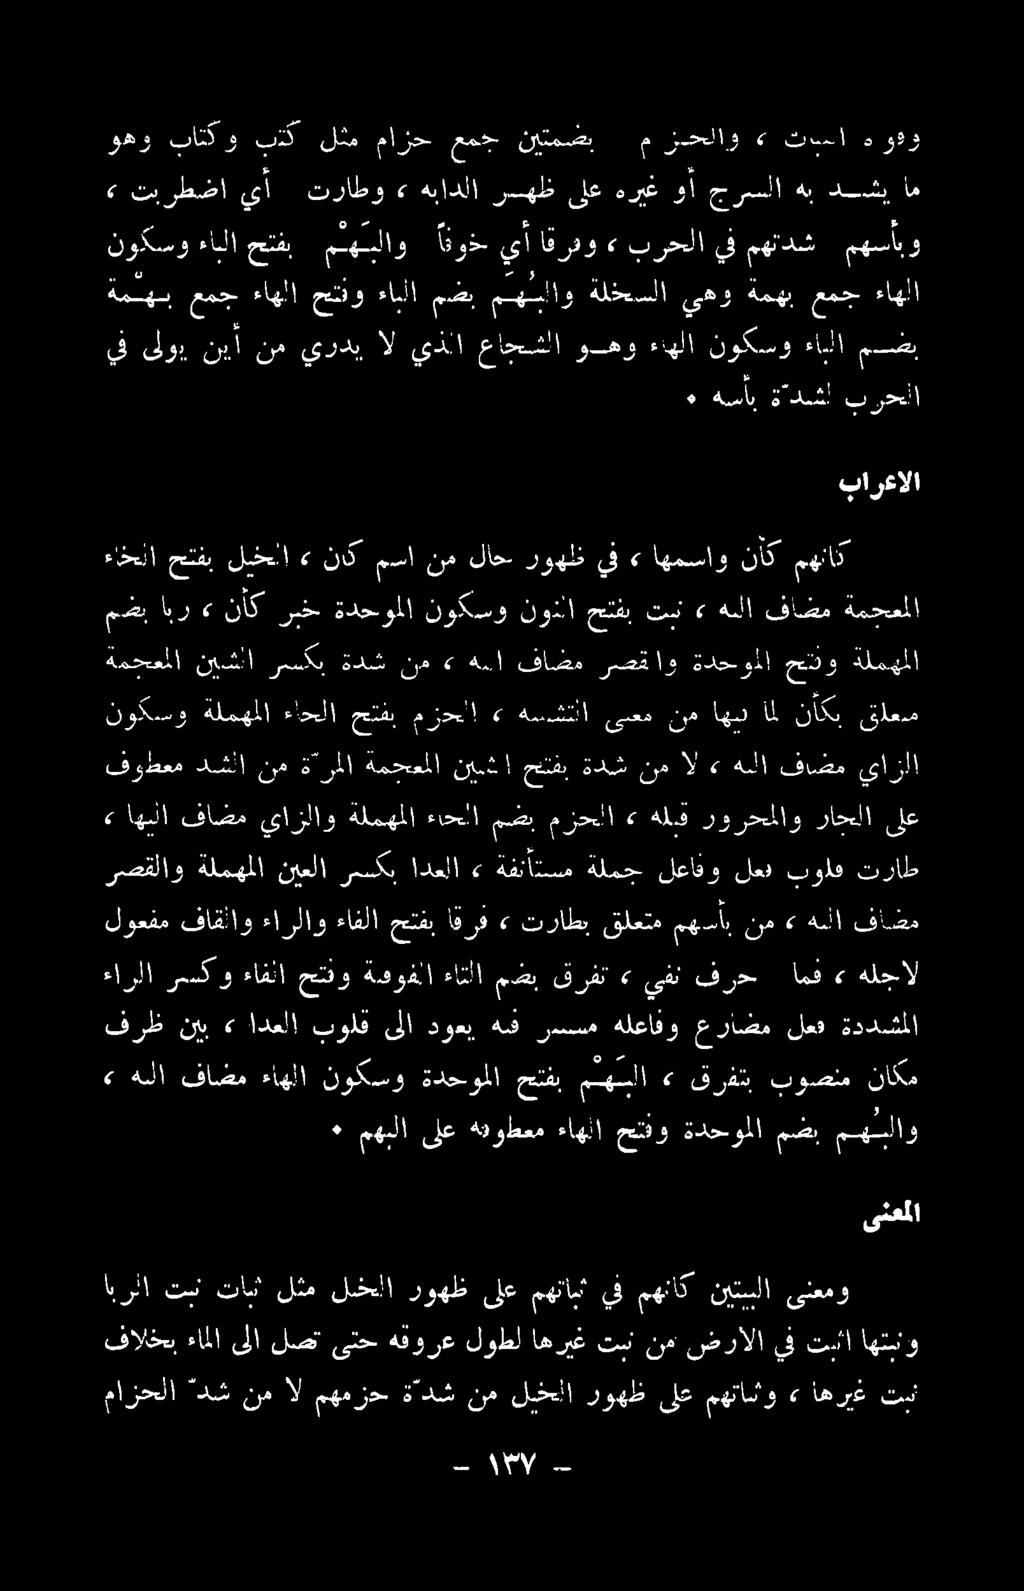 وقوة الثبات ، والحزم بضمتين جمع حزام مثل كتب وكتاب وهو
ما يشد به السرج أو غيره على ظهر الدابه ، وطارت أي اضطربت ،
وبأسهم شدتهم في الحرب ، وفرقا أي خوفاً والبَهْم بفتح الباء وسكون
الهاء جمع بهمة وهي السخلة والبُهَم بضم الباء وفتح الهاء جمع بهْمة
بضم الباء وسكون الهاء وهو الشجاع الذي لا يدري من أين يولى في
الحرب لشدّة بأسه •
الاعراب
كأنهم كأن واسمها ، في ظهور حال من اسم كان ، الخيل بفتح الخاء
المعجمة مضاف اليه ، نبت بفتح النون وسكون الموحدة خبر كأن ، ربا بضم
المهملة وفتح الموحدة والقصر مضاف اليه ، من شدة بكسر الشين المعجمة
متعلق بكأن لما فيها من معنى التشبيه ، الحزم بفتح الحاء المهملة وسكون
الزاي مضاف اليه ، لا من شدة بفتح الشين المعجمة المرّة من الشد معطوف
على الجار والمجرور قبله ، الحزم بضم الحاء المهملة والزاي مضاف اليها ،
طارت قلوب فعل وفاعل جملة مستأنفة ، العدا بكسر العين المهملة والقصر
مضاف اليه ، من بأسهم متعلق بطارت ، فرقا بفتح الفاء والراء والقاف مفعول
لاجله ، فما حرف نفي ، تفرق بضم التاء الفوقية وفتح الفاء وكسر الراء
المشددة فعل مضارع وفاعله مستتر فيه يعود الى قلوب العدا ، بين ظرف
مكان منصوب بتفرق ، البَهْم بفتح الموحدة وسكون الهاء مضاف اليه ،
والبُهَم بضم الموحدة وفتح الهاء معطوفة على البهم •
المعنى
ومعنى البيتين كأنهم في ثباتهم على ظهور الخيل مثل ثبات نبت الربا
ونبتها اثبت في الارض من نبت غيرها لطول عروقه حتى تصل الى الماء بخلاف
نبت غيرها ، وثباتهم على ظهور الخيل من شدّة حزمهم لا من شدّ الحزام
– ١٣٧ –